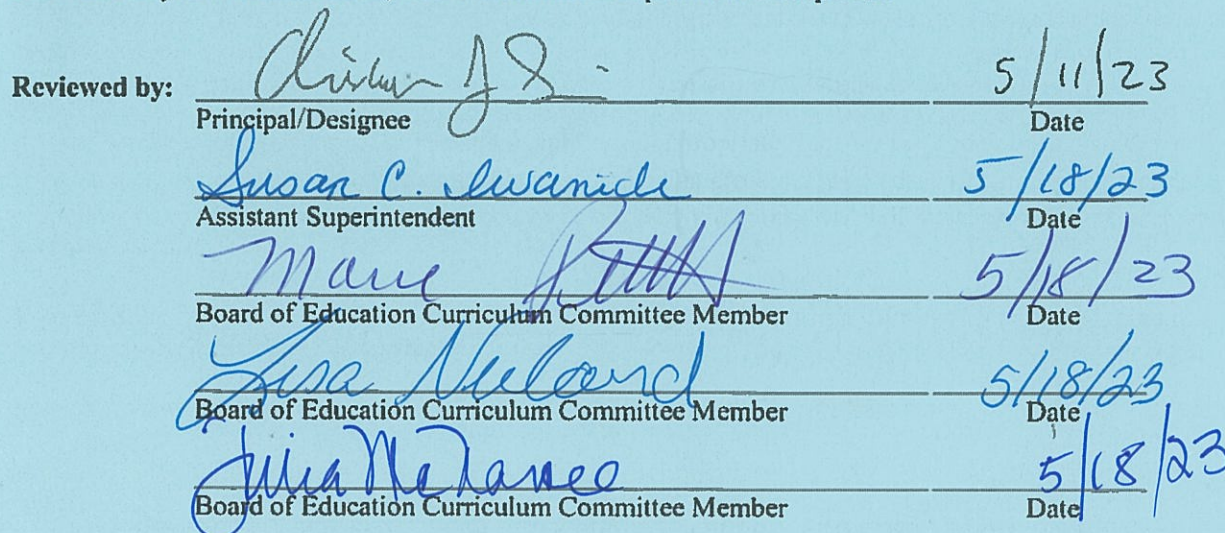 Reviewed by: 5/11/23
Principal/Designee Date
Susan C. 5/18/23
Assistant Superintendent Date
Marie 5/18/23
Board of Education Curriculum Committee Member Date
Lisa 5/18/23
Board of Education Curriculum Committee Member Date
Julia 5/18/23
Board of Education Curriculum Committee Member Date